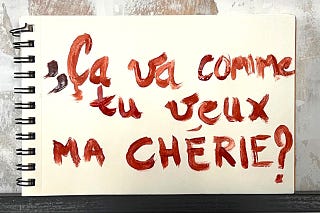 „Ça va comme
tu veux
MA CHÉRIE?